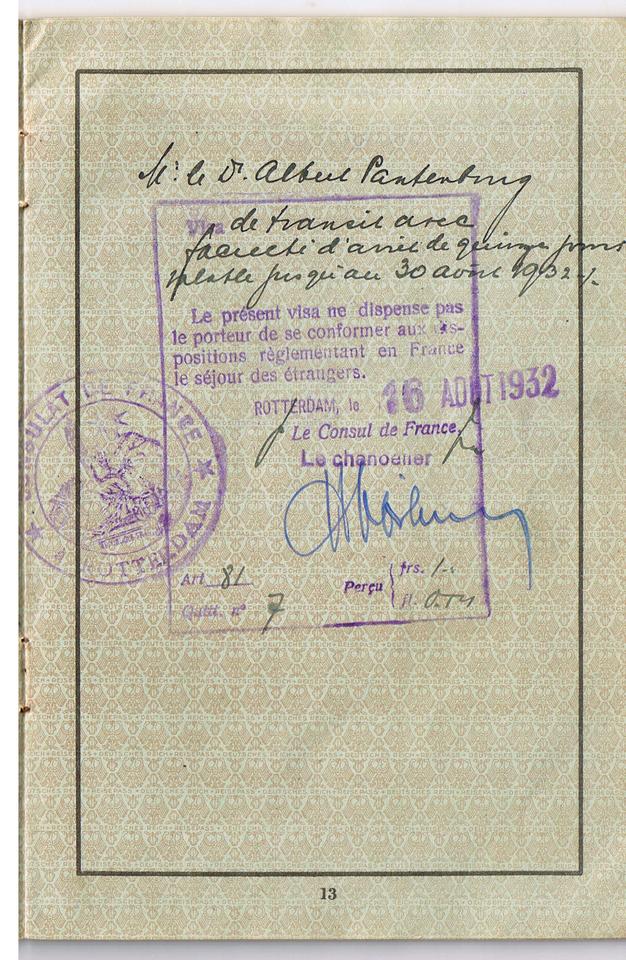 Mr. le Dr. Albert Pantenburg
Visa de transit avec
faculté d'arrêt de quinze jours
valable jusqu'au 30 août 1932 -/.
Le présent visa ne dispense pas
le porteur de se conformer aux dis-
positions règlementant en France
le séjour des étrangers.
ROTTERDAM, le 16 AOUT 1932
Le Consul de France,
Le chancelier
CONSULAT DE FRANCE
A ROTTERDAM
Art 81
Quitt. n° 7
Perçu
frs. 1-
fl.
DEUTSCHES REICH REISEPASS
13